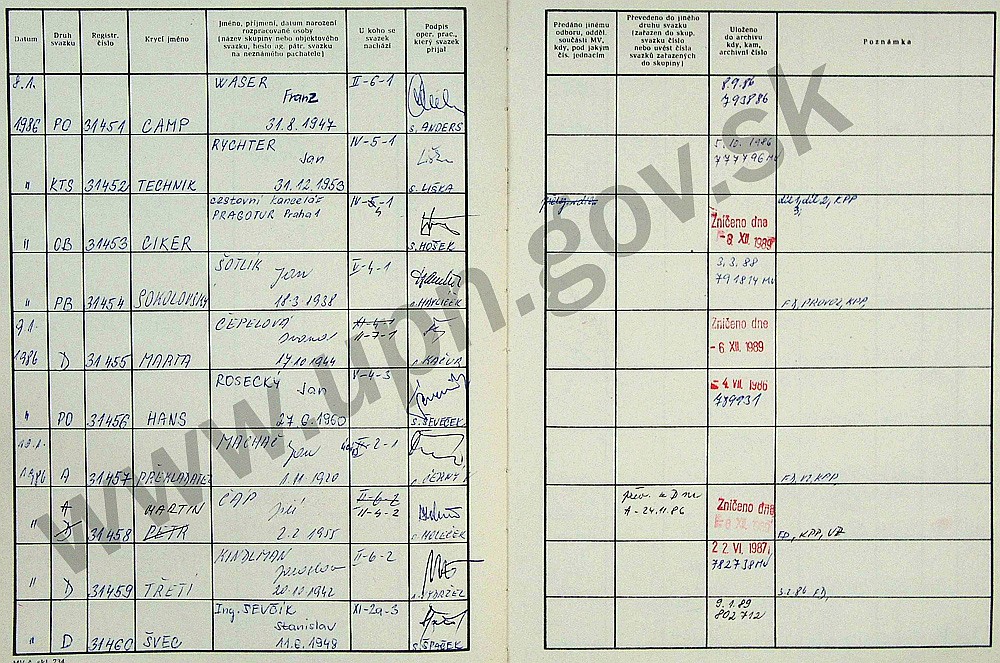 Datum
Druh svazku
Registr. číslo
Krycí jméno
Jméno, příjmení, datum narození
rozpracované osoby
(název skupiny nebo objektového
svazku, heslo ag. pátr. svazku
na neznámého pachatele)
U koho se
svazek
nachází
Podpis
oper. prac.,
který svazek
přijal
Předáno jinému
odboru, odděl.
součásti MV,
kdy, pod jakým
čís. jednacím
Převedeno do jiného
druhu svazku
(zařazen do skup.
svazku číslo
nebo uvést čísla
svazků zařazených
do skupiny)
Uloženo
do archivu
kdy, kam,
archivní číslo
Poznámka
8.1.
WASER
II-6-1
8.9.86
Franz
793886
1986 PO 31451 CAMP
31.8.1947
s. ANDERS
RYCHTER
IV-5-1
5.10.1986
Jan
777796 MV
" KTS 31452 TECHNIK
31.12.1953
s. LIŠKA
cestovní kancelář
PRAGOTUR Praha 1
díl 1, díl 2, KPP
Zničeno dne
-8. XII. 1989
" OB 31453 CIKER
s. HOŠEK
ŠOTLIK
V-4-1
3.3.88
Jan
791814 MV
" PB 31454 SOKOLOVSKÝ
18.3.1938
s. HAVLÍČEK
FD, PROVOZ, KPP,
9.1.
ČEPELOVÁ
II-7-1
Zničeno dne
-6 XII. 1989
1986 D 31455 MARTA
17.10.1944
s. KAČUR
ROSECKÝ
V-4-3
-4. VII. 1986
Jan
789231
" PO 31456 HANS
27.6.1960
s. ŠEVEČEK
MACHAČ
Jan
1986 A 31457 PŘEKLADATEL
1.11.1920
s. ČERNÝ
A MARTIN
ČAP
II-6-2
Zničeno dne
Jiří
II-4-2
A-24.11.86
" D 31458 PETR
2.2.1955
s. HOLEČEK
FD, KPP, VZ
KINDLMAN
II-6-2
22. VI. 1987
Jaroslav
782738 MV
" D 31459 TŘETÍ
20.10.1942
s. VYDRŽEL
3.2.86 FD,
Ing. ŠEVČÍK
XI-2a-3
9.1.89
Stanislav
802712
" D 31460 ŠVEC
11.6.1948
s. ŠPAČEK
www.upn.gov.sk